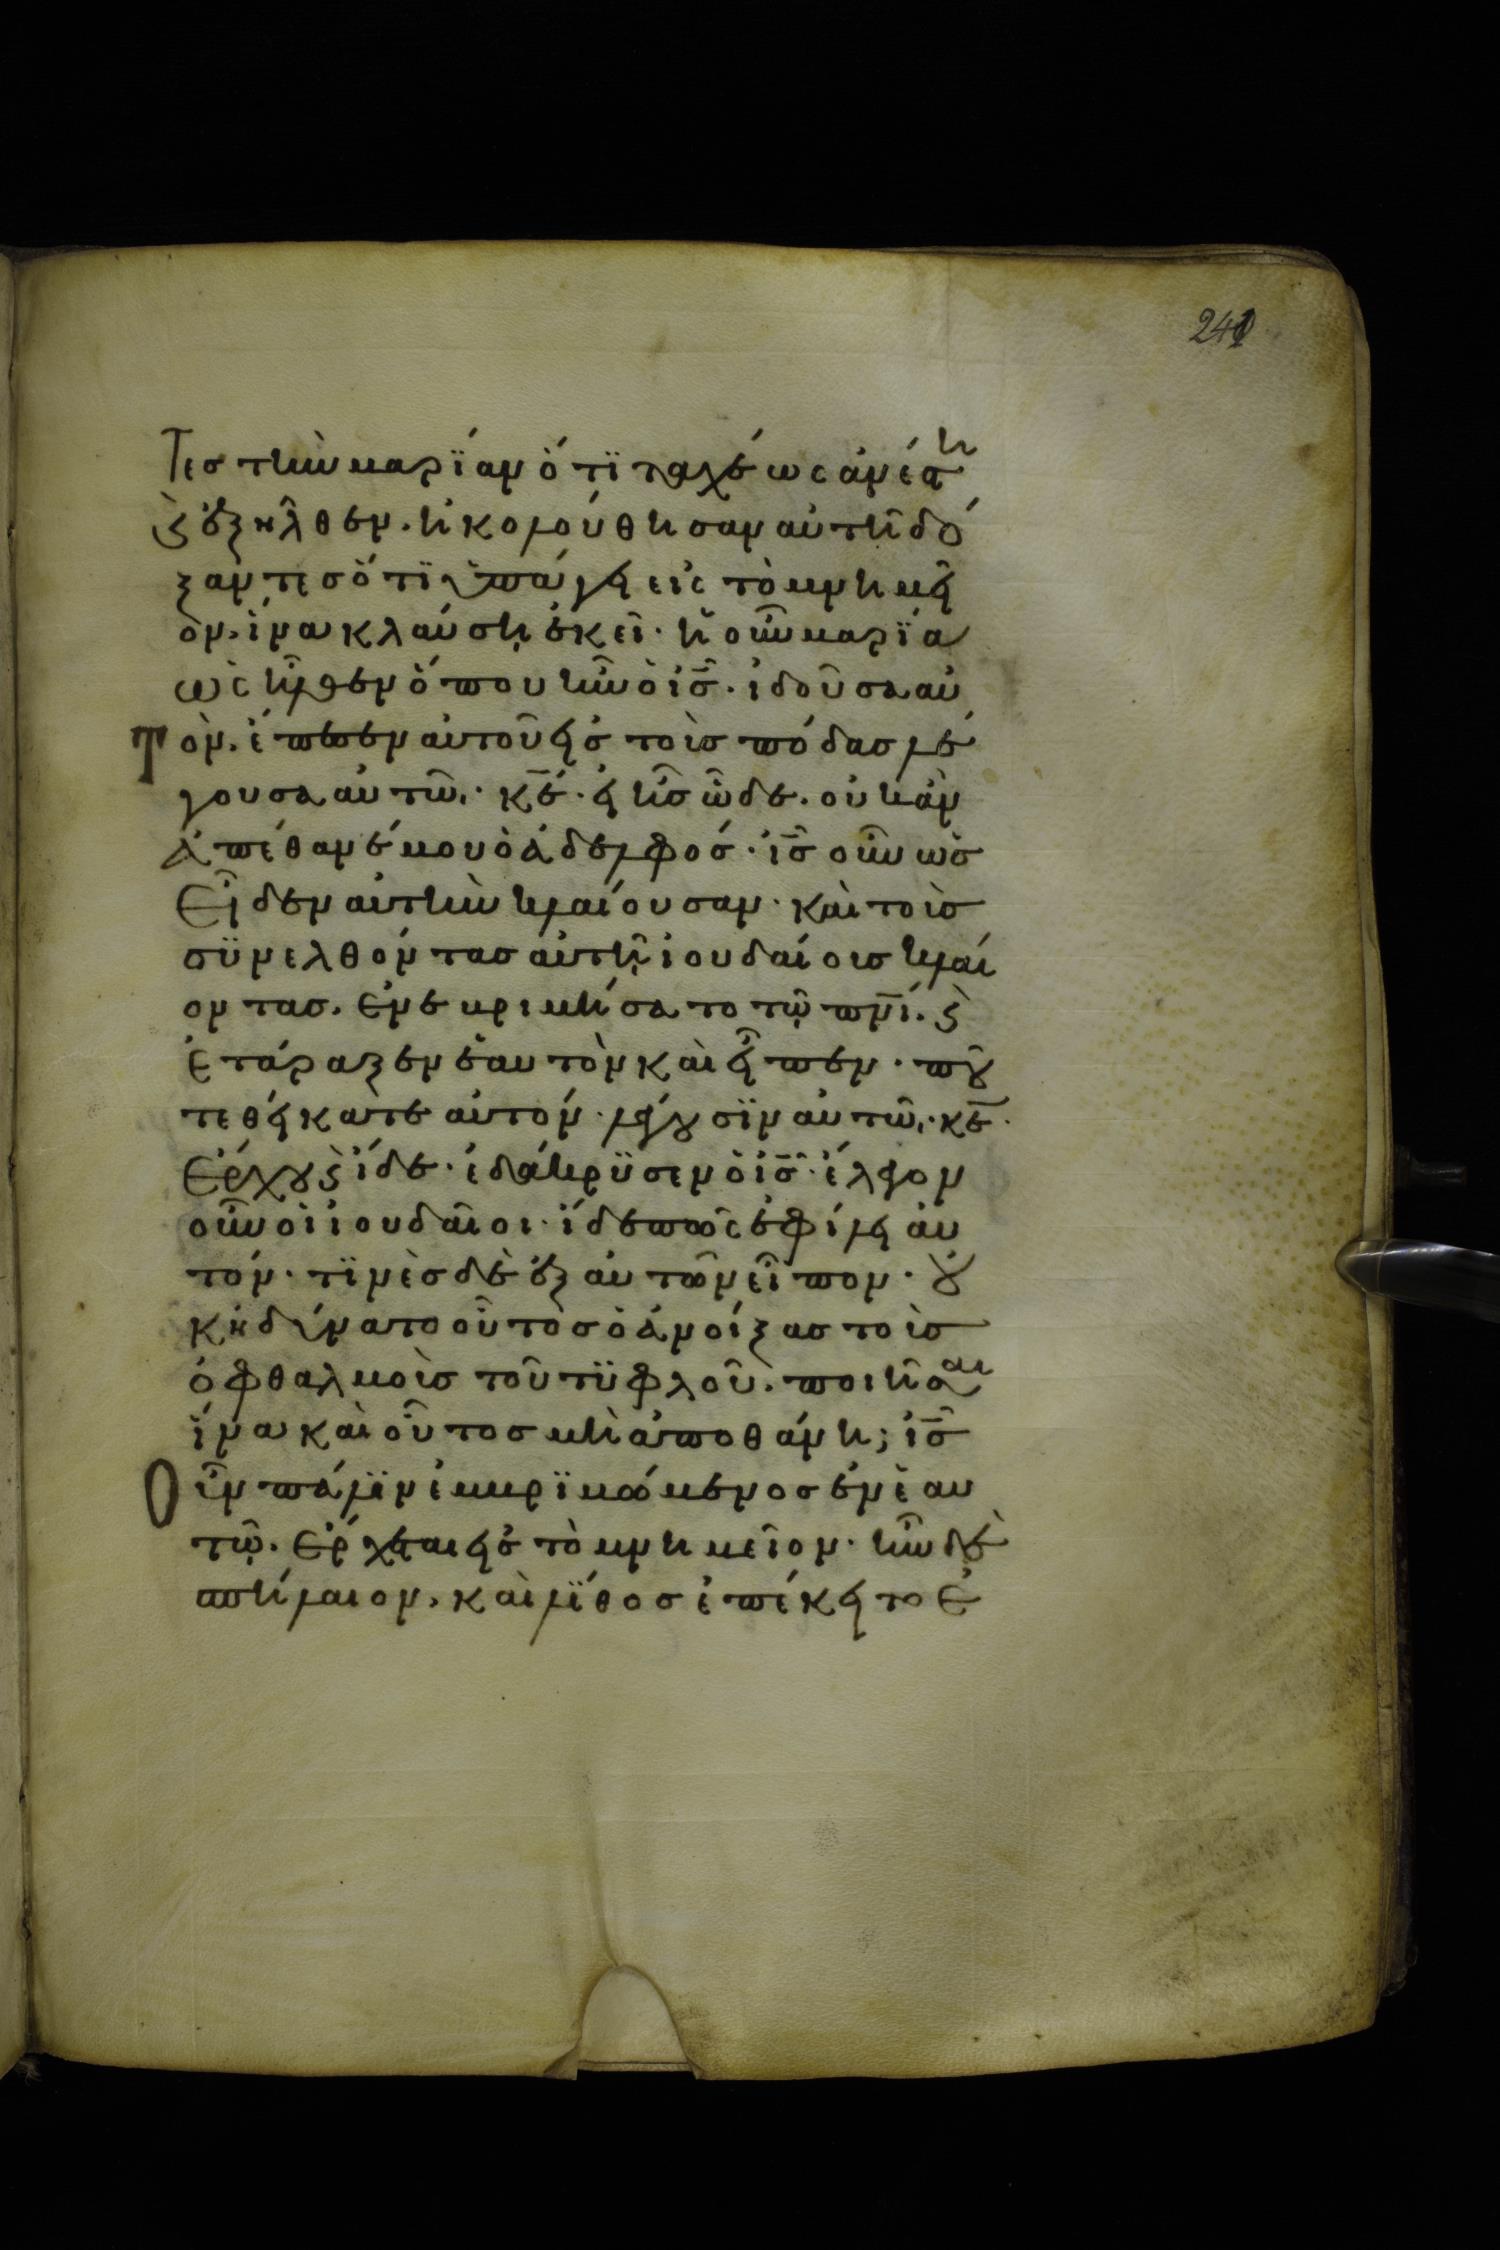 241
τες την μαρϊαμ ὅτϊ ταχέως ἀνέστη
ϛ ἐξῆλθεν. ἠκολούθησαν αὐτῆ δό
ξαντες ὅτϊ ὑπάγει εἰς τὸ μνημεῖ
ον. ἵνα κλαύση ἐκεῖ· ἡ οὖν μαρϊα
ὡς ἦλθεν ὅπου ἦν ὁ ις· ἰδοῦσα αὐ
τὸν. ἔπεσεν αὐτοῦ εἰς τοὶς πόδας λέ
γουσα αὐτῶ· κε· εἰ ἦς ὧδε. οὐκ ἀν
ἀπέθανέ μου ὁ ἀδελφός· ις οὖν ὡς
εἶδεν αὐτὴν κλαίουσαν· καὶ τοὶς
σϋνελθόντας αὐτῆ ἰουδαίοις κλαί
οντας. ἐνεβριμήσατο τῶ πνι. ϛ
ἐτάραξεν ἑαυτὸν καὶ εἶπεν· ποῦ
τεθείκατε αὐτόν· λέγουσϊν αὐτῶ· κε·
ἔρχου ϛ ἴδε· ἐδάκρϋσεν ὁ ις· ἔλεγον
οὖν οἱ ἰουδαῖοι· ἴδε πῶς ἐφίλει αὐ
τόν· τϊνὲς δὲ ἐξ αὐτῶν εἶπον· οὐ
κ ηδύνατο οὗτος ὁ ἀνοίξας τοὶς
ὀφθαλμοὶς τοῦ τϋφλοῦ. ποιῆσαι
ἵνα καὶ οὗτος μὴ ἀποθάνη; ις
οὖν πάλϊν ἐμβρϊμώμενος ἐν ἑαυ
τῶ. ἔρχεται εἰς τὸ μνημεῖον· ἦν δὲ
σπήλαιον. καὶ λίθος ἐπέκειτο ἐ